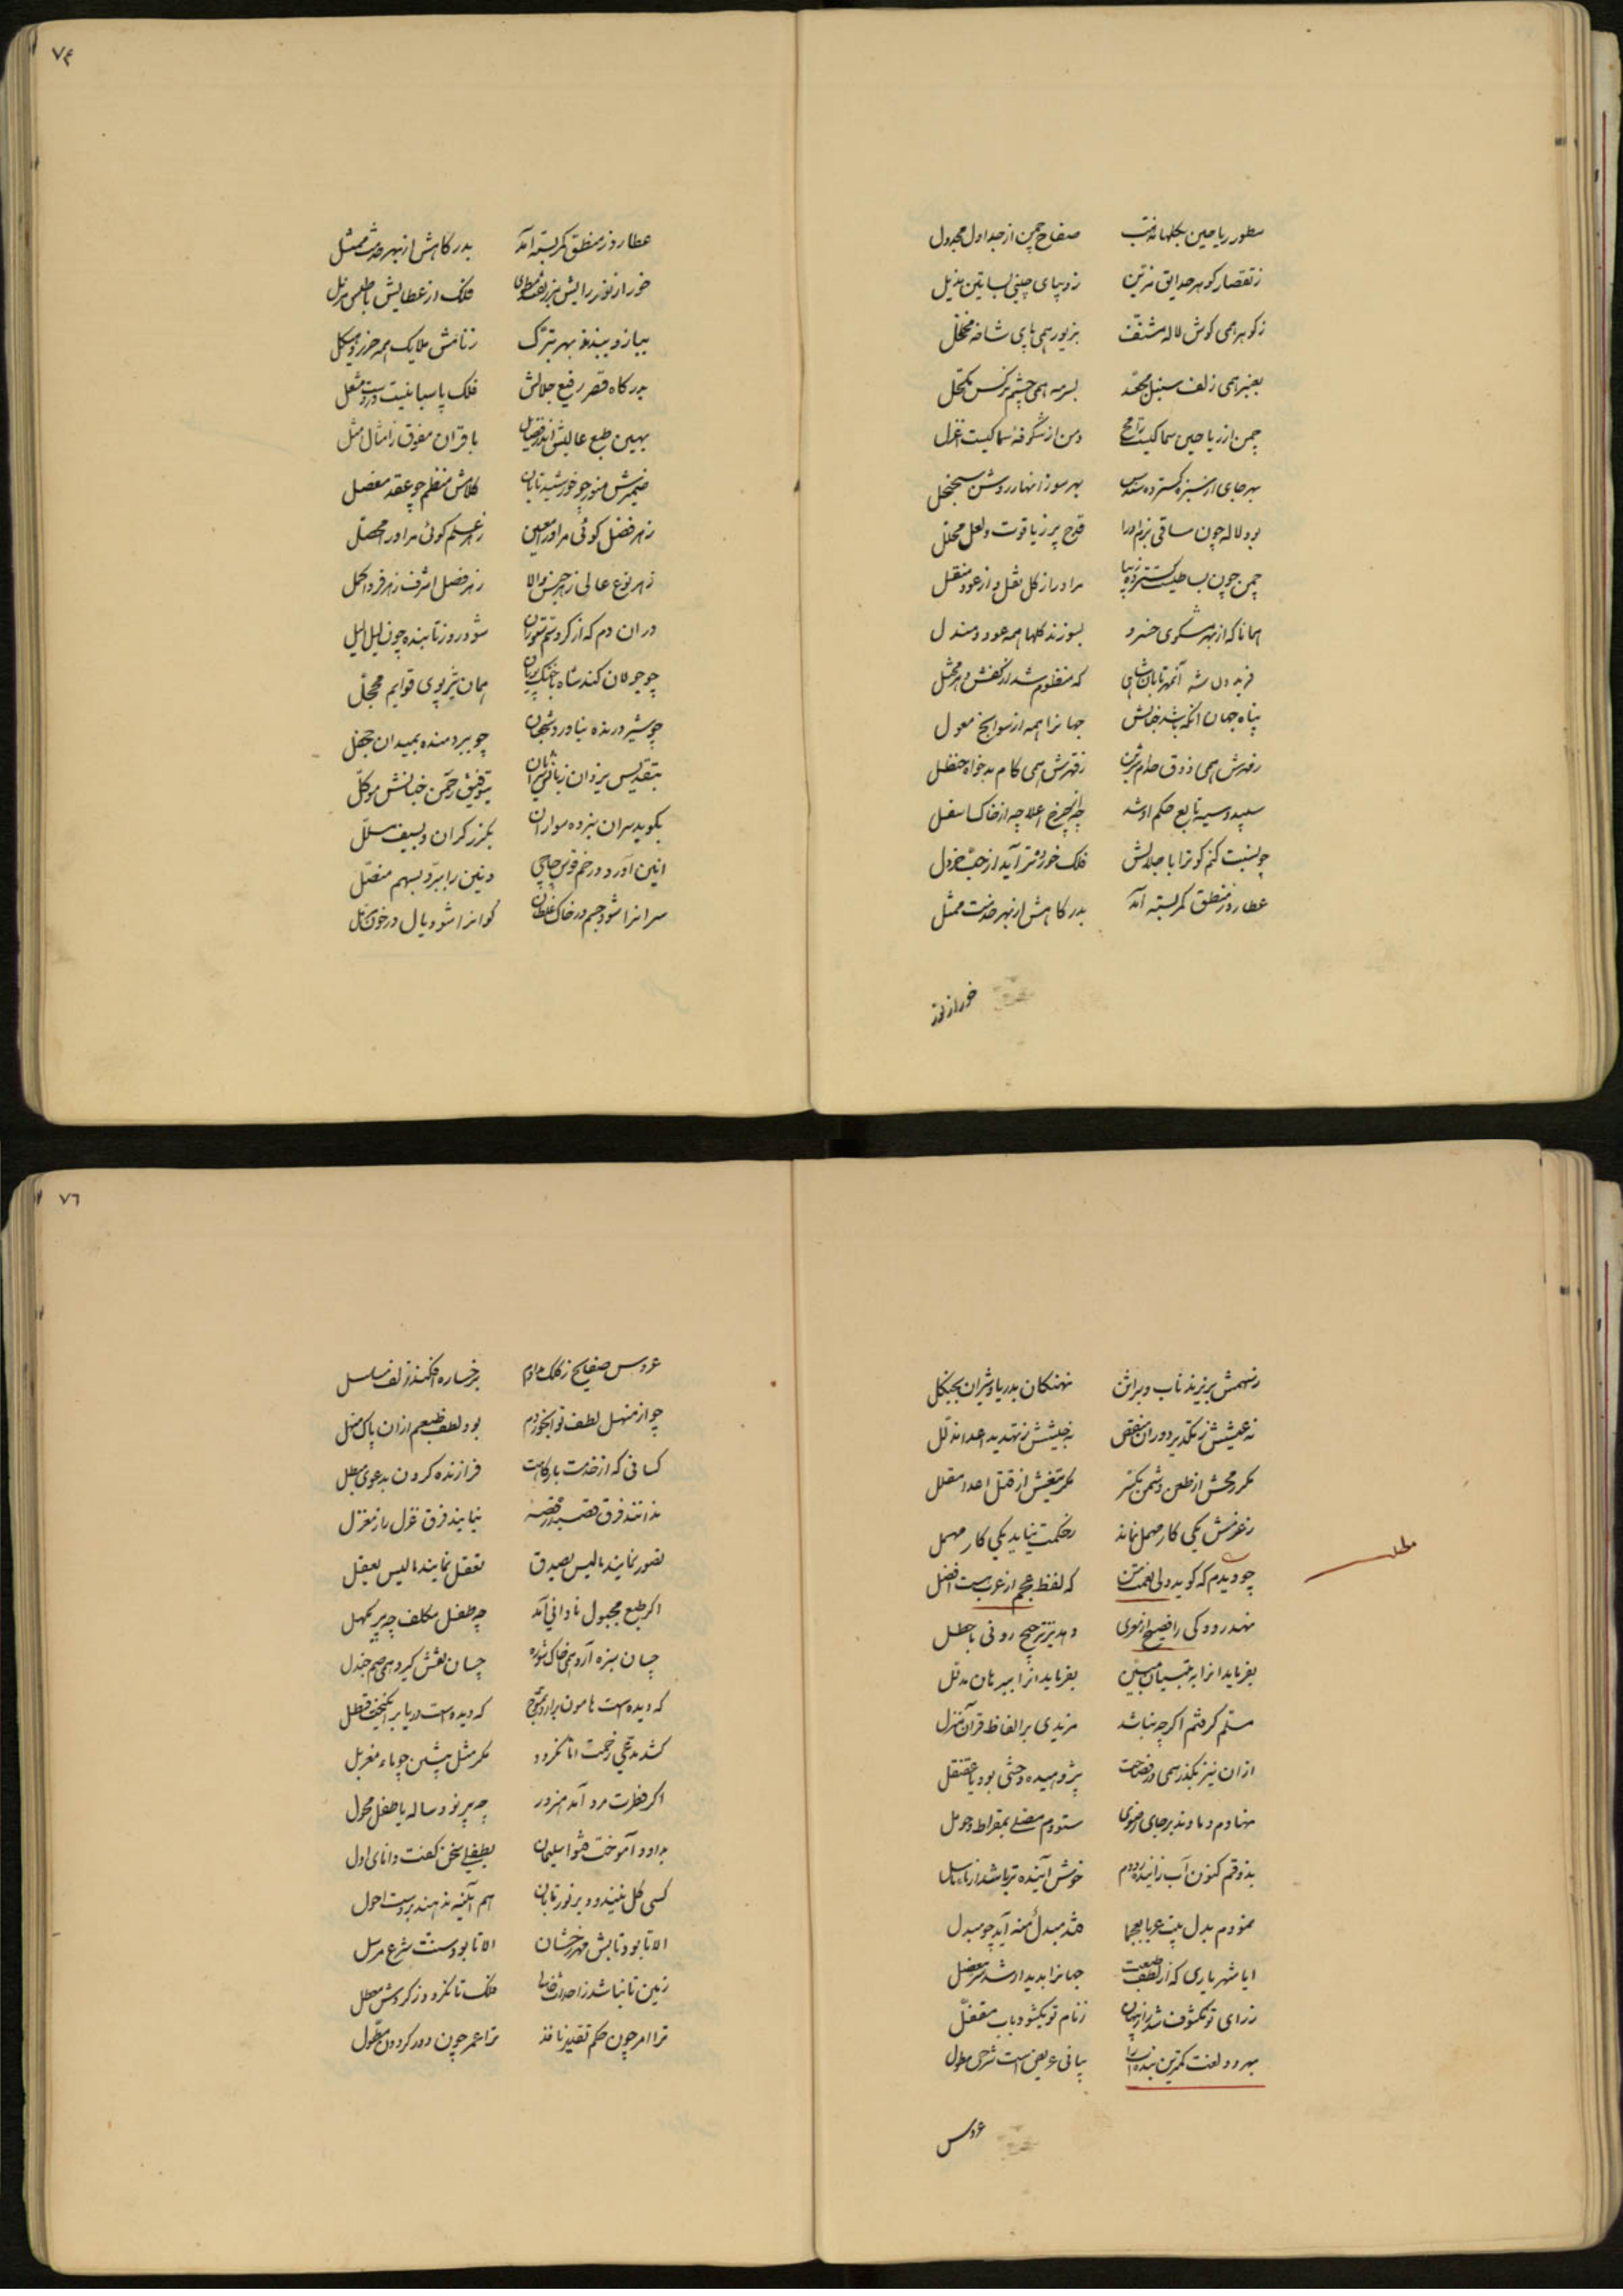 سطور ریاحین بکلها مذهب صفاح چمن از جداول مجدول
ز تقصار کوهر حدایق مزین ز دیبای چینی بساتین مذیل
ز کوهر همی کوش لاله مشنف بزیور همی پای شاخه مخلخل
بعنبر همی زلف سنبل مجعد بسرمه همی چشم نرکس مکحل
چمن از ریاحین سماکیست رامح دمن از شکوفه سماکیست اعزل
بهر جای از سبزه کسترده سندس بهر سو ز انهار روشن سجنجل
بود لاله چون ساقی بزم او را قدح پر ز یاقوت و لعل محلل
چمن چون بساطیست کسترده زیبا مر او را ز کل نقل و از عود منقل
همانا که از بهر مشکوی خسرو بسوزند کلها همه عود و مندل
فریدون شه آنمهر تابان شاهی که منظوم شد از کفش
پناه جهان انکه باشد جهانرا همه از سوانح معول
همی ذوق ز قهرش همی کام بدخواه حنظل
سپید و سیه تابع حکم او شد چه از چرخ اعلا چه از خاک اسفل
چو نسبت کنم کوترا با جلالش فلک خوردتر آید از حب خردل
عطارد ز منطق کمر بسته آمد بدرکاهش از بهر خدمت ممثل
خور از نور
۷۴
عطارد ز منطق کمر بسته آمد بدرکاهش از بهر خدمت ممثل
خور از نور رایش فلک از عطایش
ببازو ببندند بهر تبرک ز نامش ملایک همه حرز و هیکل
بدرکاه قصر رفیع جلالش فلک پاسبانیست در دست مشعل
بهین طبع عالیش باقران مفوق ز امثال امثل
ضمیرش منور چو خورشید تابان کلامش منظم چو عقد مفصل
ز هر فضل کوئی مر او را معین ز هر علم کوئی مر او را محصل
ز هر نوع عالی ز هر جنس والا ز هر فصل اشرف ز هر فرد اکمل
در ان دم که از کرد سم ستوران شود روز تابنده چون لیل الیل
چو جولان کند شاه با خنک پریان همان تیزپوی قوایم محجل
چو شیر درنده بناورد شجعان چو ببر دمنده بمیدان جحفل
بتقدیس یزدان زبانش بتوفیق رحمن جنانش موکل
بکوبد سران نبرده سواران بکرز کران و بسیف مسلل
انین آورد در خم قوس چاچی وتین را ببرد بسهم منصل
سرانرا شود جسم در خاک غلطان کوانرا شود یال در خون
ز سهمش بریزند ناب و براثن نهنکان بدریا و شیران بجنکل
نه عیشش ز تکدیر دوران منغص نه جیشش ز تهدید اعدا مذلل
مکر رمحش از طعن دشمن مکسر مکر تیغش از قتل اعدا مفلل
ز عزمش یکی کار مهمل نماند ز حکمت نیاید یکی کار مهمل
مطلب
چو دیدم که کوید ولی نعمت من که لفظ عجم از عرب هست افضل
نهد رودکی را فصیح از نموی دهد نیز ترجیح رونی باخطل
بفرماید انرا به تبیان مبین بفرماید انرا ببرهان مدلل
مسلم کرفتم اکرچه نباشد مزیدی بر الفاظ قرآن منزل
ازان نیز بکذر همی در فصاحت پژوهیده وحشی بود یا عقنقل
نهادم دماوند بر جای رضوی ستودم بسقراط و حومل
بذوقم کنون آب زاینده رودم خوش آینده تر باشد از ماء سلسل
نمودم بدل بیت عربا بعجما نشد مبدل منه آید چو مبدل
ایا شهریاری که از لطف طبعت جهانرا پدیدار شد سر معضل
ز رای تو مکشوف شد راز پنهان ز نام تو بکشود باب مقفل
بهر دو لغت کمترین بنده ات را بیانی عریض است شرحی مطول
عروس
۷۶
عروس صفایح ز کلک مدادم برخساره افکند زلف مسلسل
چو از منهل لطف تو آبخوردم بود لطف طبعم ازان پاک منهل
کسانی که از خدمت بارکاهت فرازنده کردن بدعوی مبطل
ندانند فرق قصیده ز قصه نیابند فرق غزل را ز مغزل
تصور نمایند ما لیس یصدق تعقل نمایند ما لیس یعقل
اکر طبع مجبول نادانی آمد چه طفل مکلف چه پیر مکهل
چسان سبزه آرد همی خاک شوره چسان نقش کیرد همی صم جندل
که دیده است هامون برارد تموج که دیده است دریا بر انکیخت قسطل
کشد مدعی زحمت اما نکردد مکر مثل پیشین چو ماء مغربل
اکر فطرت مرد آمد مزور چه پیر نود ساله یا طفل محول
بداود آموخت هشوا سلیمان بطفلی سخن کفت دانای اول
کسی کل نبیندود بر نور تابان هم آئینه ننهند بر دست احول
الا تا بود تابش مهر رخشان الا تا بود سنت شرع مرسل
زمین تا نباشد ز احداث خالی فلک تا نکردد ز کردش معطل
ترا امر چون حکم تقدیر نافذ ترا عمر چون دور کردون مطول